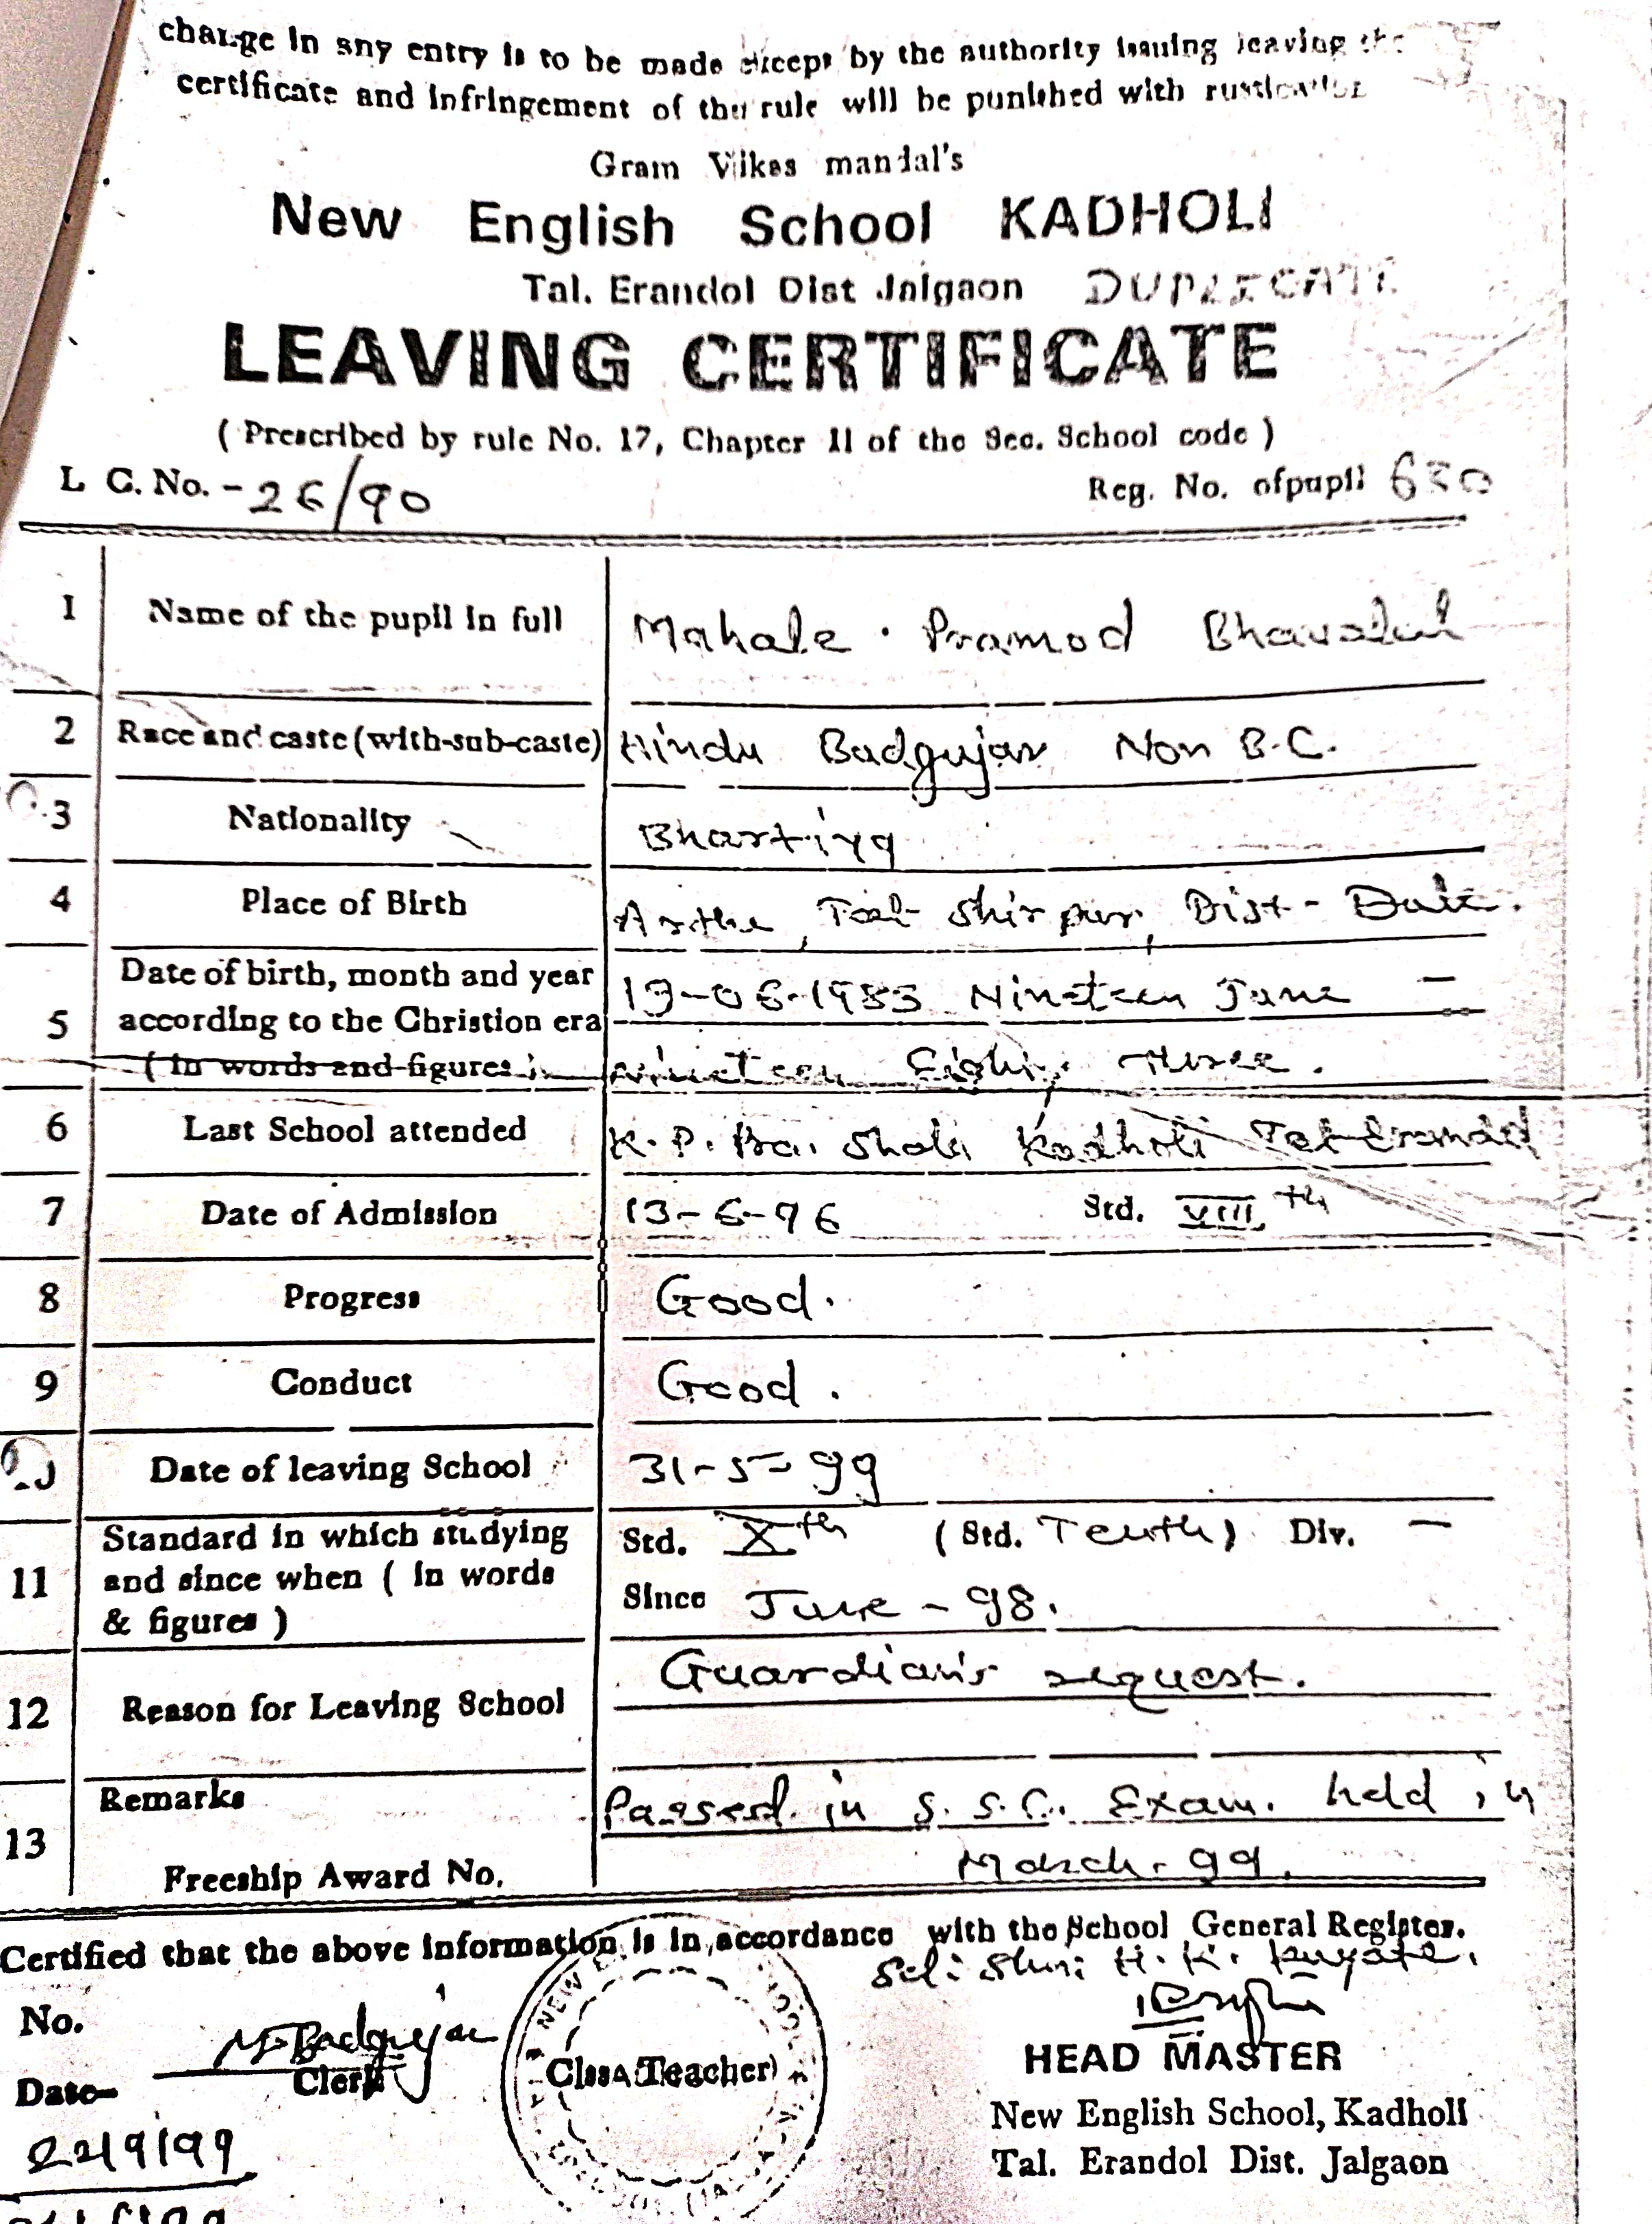 change in any entry is to be made except by the authority issuing leaving the
certificate and infringement of the rule will be punished with rustication
Gram Vikas mandal's
New English School KADHOLI
Tal. Erandol Dist Jalgaon DUPLICATE
LEAVING CERTIFICATE
( Prescribed by rule No. 17, Chapter II of the Sec. School code )
L C. No. - 26/90 Reg. No. ofpupil 630
1 Name of the pupil in full Mahale. Pramod Bhavalal
2 Race and caste (with-sub-caste) Hindu Badgujar Non B.C.
3 Nationality Bhartiya
4 Place of Birth Arthe, Tal- Shirpur, Dist-
Date of birth, month and year 19-06-1983 Nineteen June -
5 according to the Christion era
( in words and figures nineteen Eighty three.
6 Last School attended K. P. Pra. Shala Kadholi Tal-Erandol
7 Date of Admission 13-6-96 Std. VIII th
8 Progress Good.
9 Conduct Good.
Date of leaving School 31-5-99
Standard in which studying Std. X th (Std. Tenth) Div. -
11 and since when ( in words Since June - 98.
& figures )
Guardian's request.
12 Reason for Leaving School
Remarks Passed in S. S. C. Exam. held in
13 March-99.
Freeship Award No.
Certified that the above information is in accordance with the School General Register.
Sd: Shri H. K.
No. M. Badgujar
Clerk Class Teacher HEAD MASTER
Date- New English School, Kadholi
22/9/99 Tal. Erandol Dist. Jalgaon